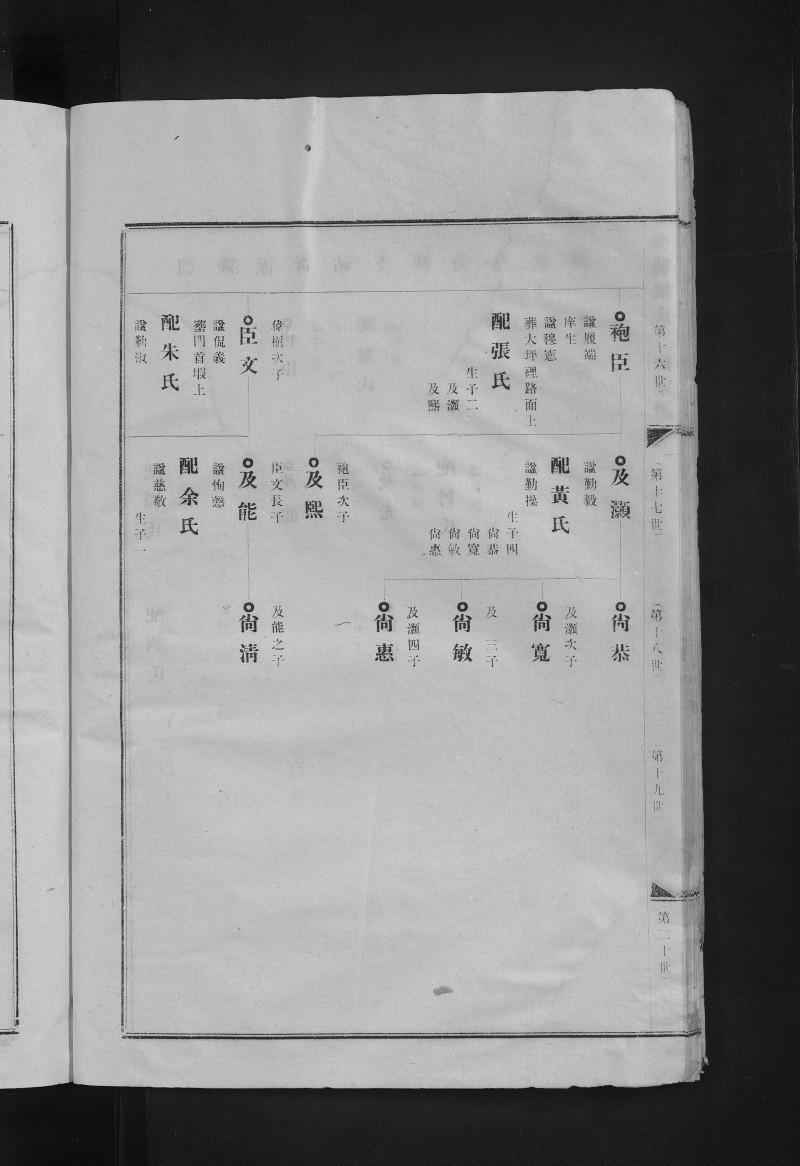 第十六世
袍臣
諡履端
庠生
諡穆憲
葬大坪裡路面上
配張氏
生子二
及灝
及熙
偉樹次子
臣文
諡侃義
葬門首塅上
配朱氏
諡勤淑
第十七世
及灝
諡勤毅
配黃氏
諡勤操
生子四
尙恭
尙寬
尙敏
尙惠
袍臣次子
及熙
臣文長子
及能
諡恂慤
配余氏
諡慈敬
生子一
第十八世
尙恭
及灝次子
尙寬
及 三子
尙敏
及灝四子
尙惠
及能之子
尙淸
第十九世
第二十世